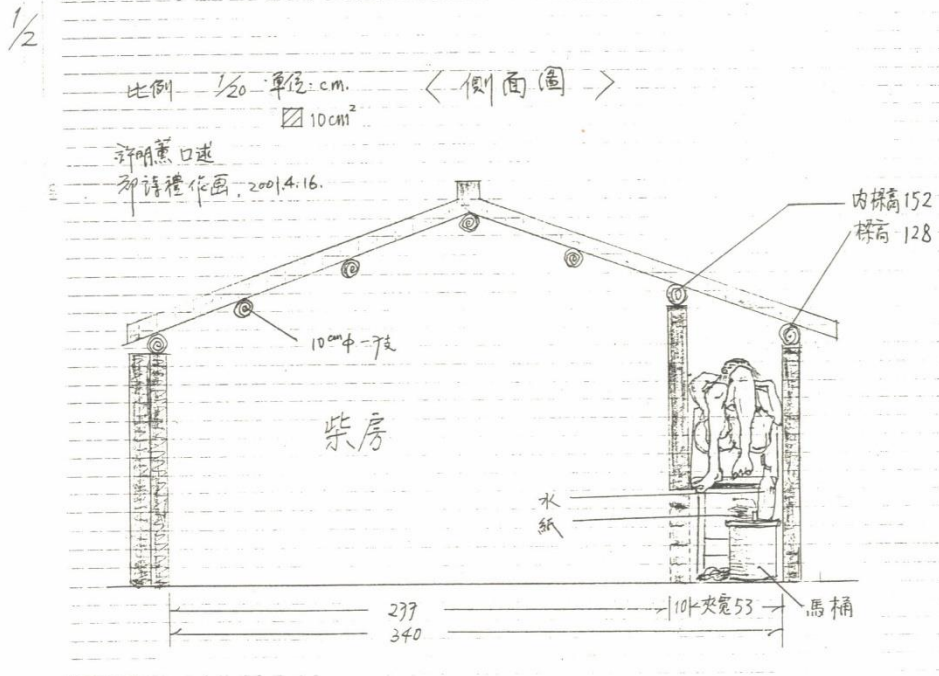 1/2
比例 1/20 單位:cm. 〈側面圖〉
10cm²
許明薰口述
作画, 2001.4.16.
内樑高152
樑高 128
10cmφ一支
柴房
水
紙
277
10
夾寬53
馬桶
340